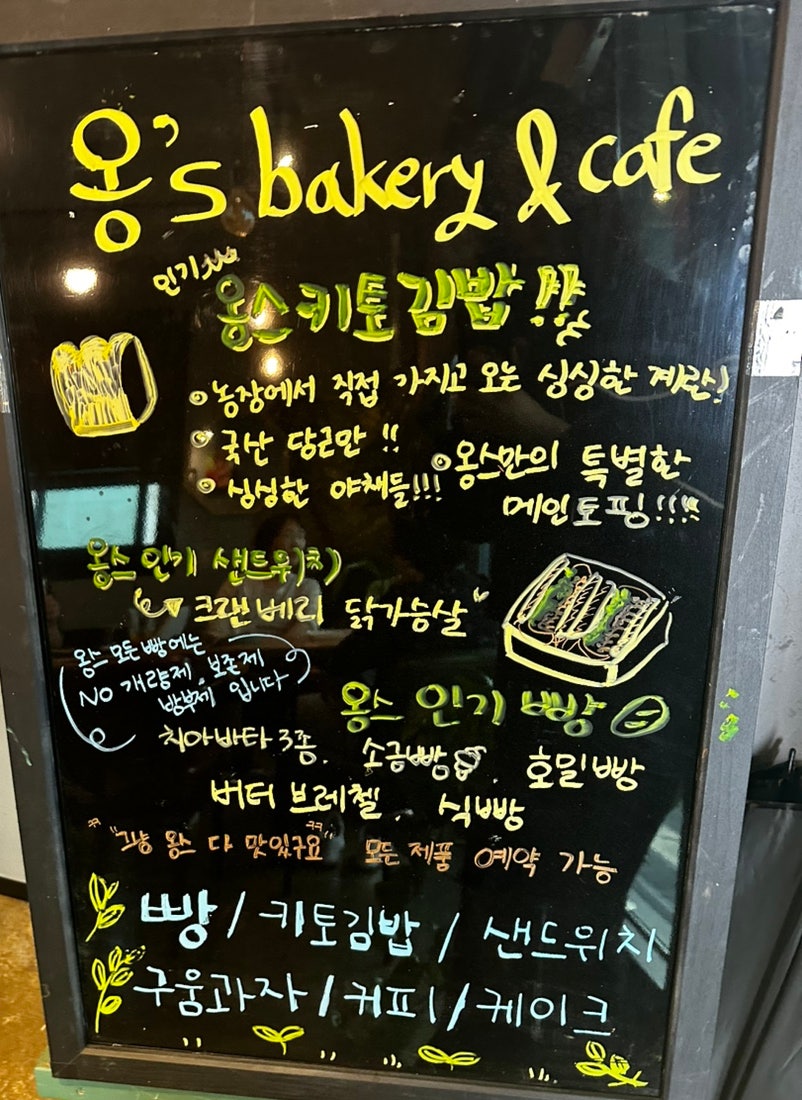 옹's bakery & cafe
인기
옹스키토김밥!!
농장에서 직접 가지고 오는 싱싱한 계란!
국산 당근만!!
싱싱한 야채들!!!
옹스만의 특별한
메인토핑!!!!
옹스 인기 샌드위치)
크랜베리 닭가슴살"
옹스 모든 빵에는
No 개량제. 보존제
방부제 입니다
옹스 인기 빵
치아바타 3종. 소금빵. 호밀빵
버터 브레첼. 식빵
"그냥 옹스 다 맛있구요" 모든 제품 예약 가능
빵 / 키토김밥 / 샌드위치
구움과자 / 커피 / 케이크